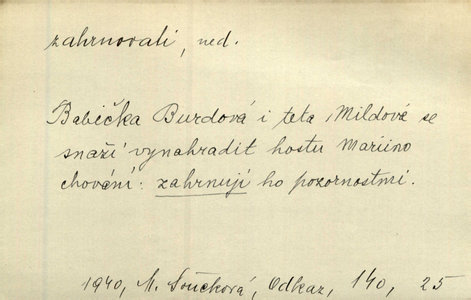 zahrnovali, ned.
Babička Burdová i teta Mildová se
snaží vynahradit hostu Mariino
chování: zahrnují ho pozornostmi.
1940, M. Součková, Odkaz, 140, 25